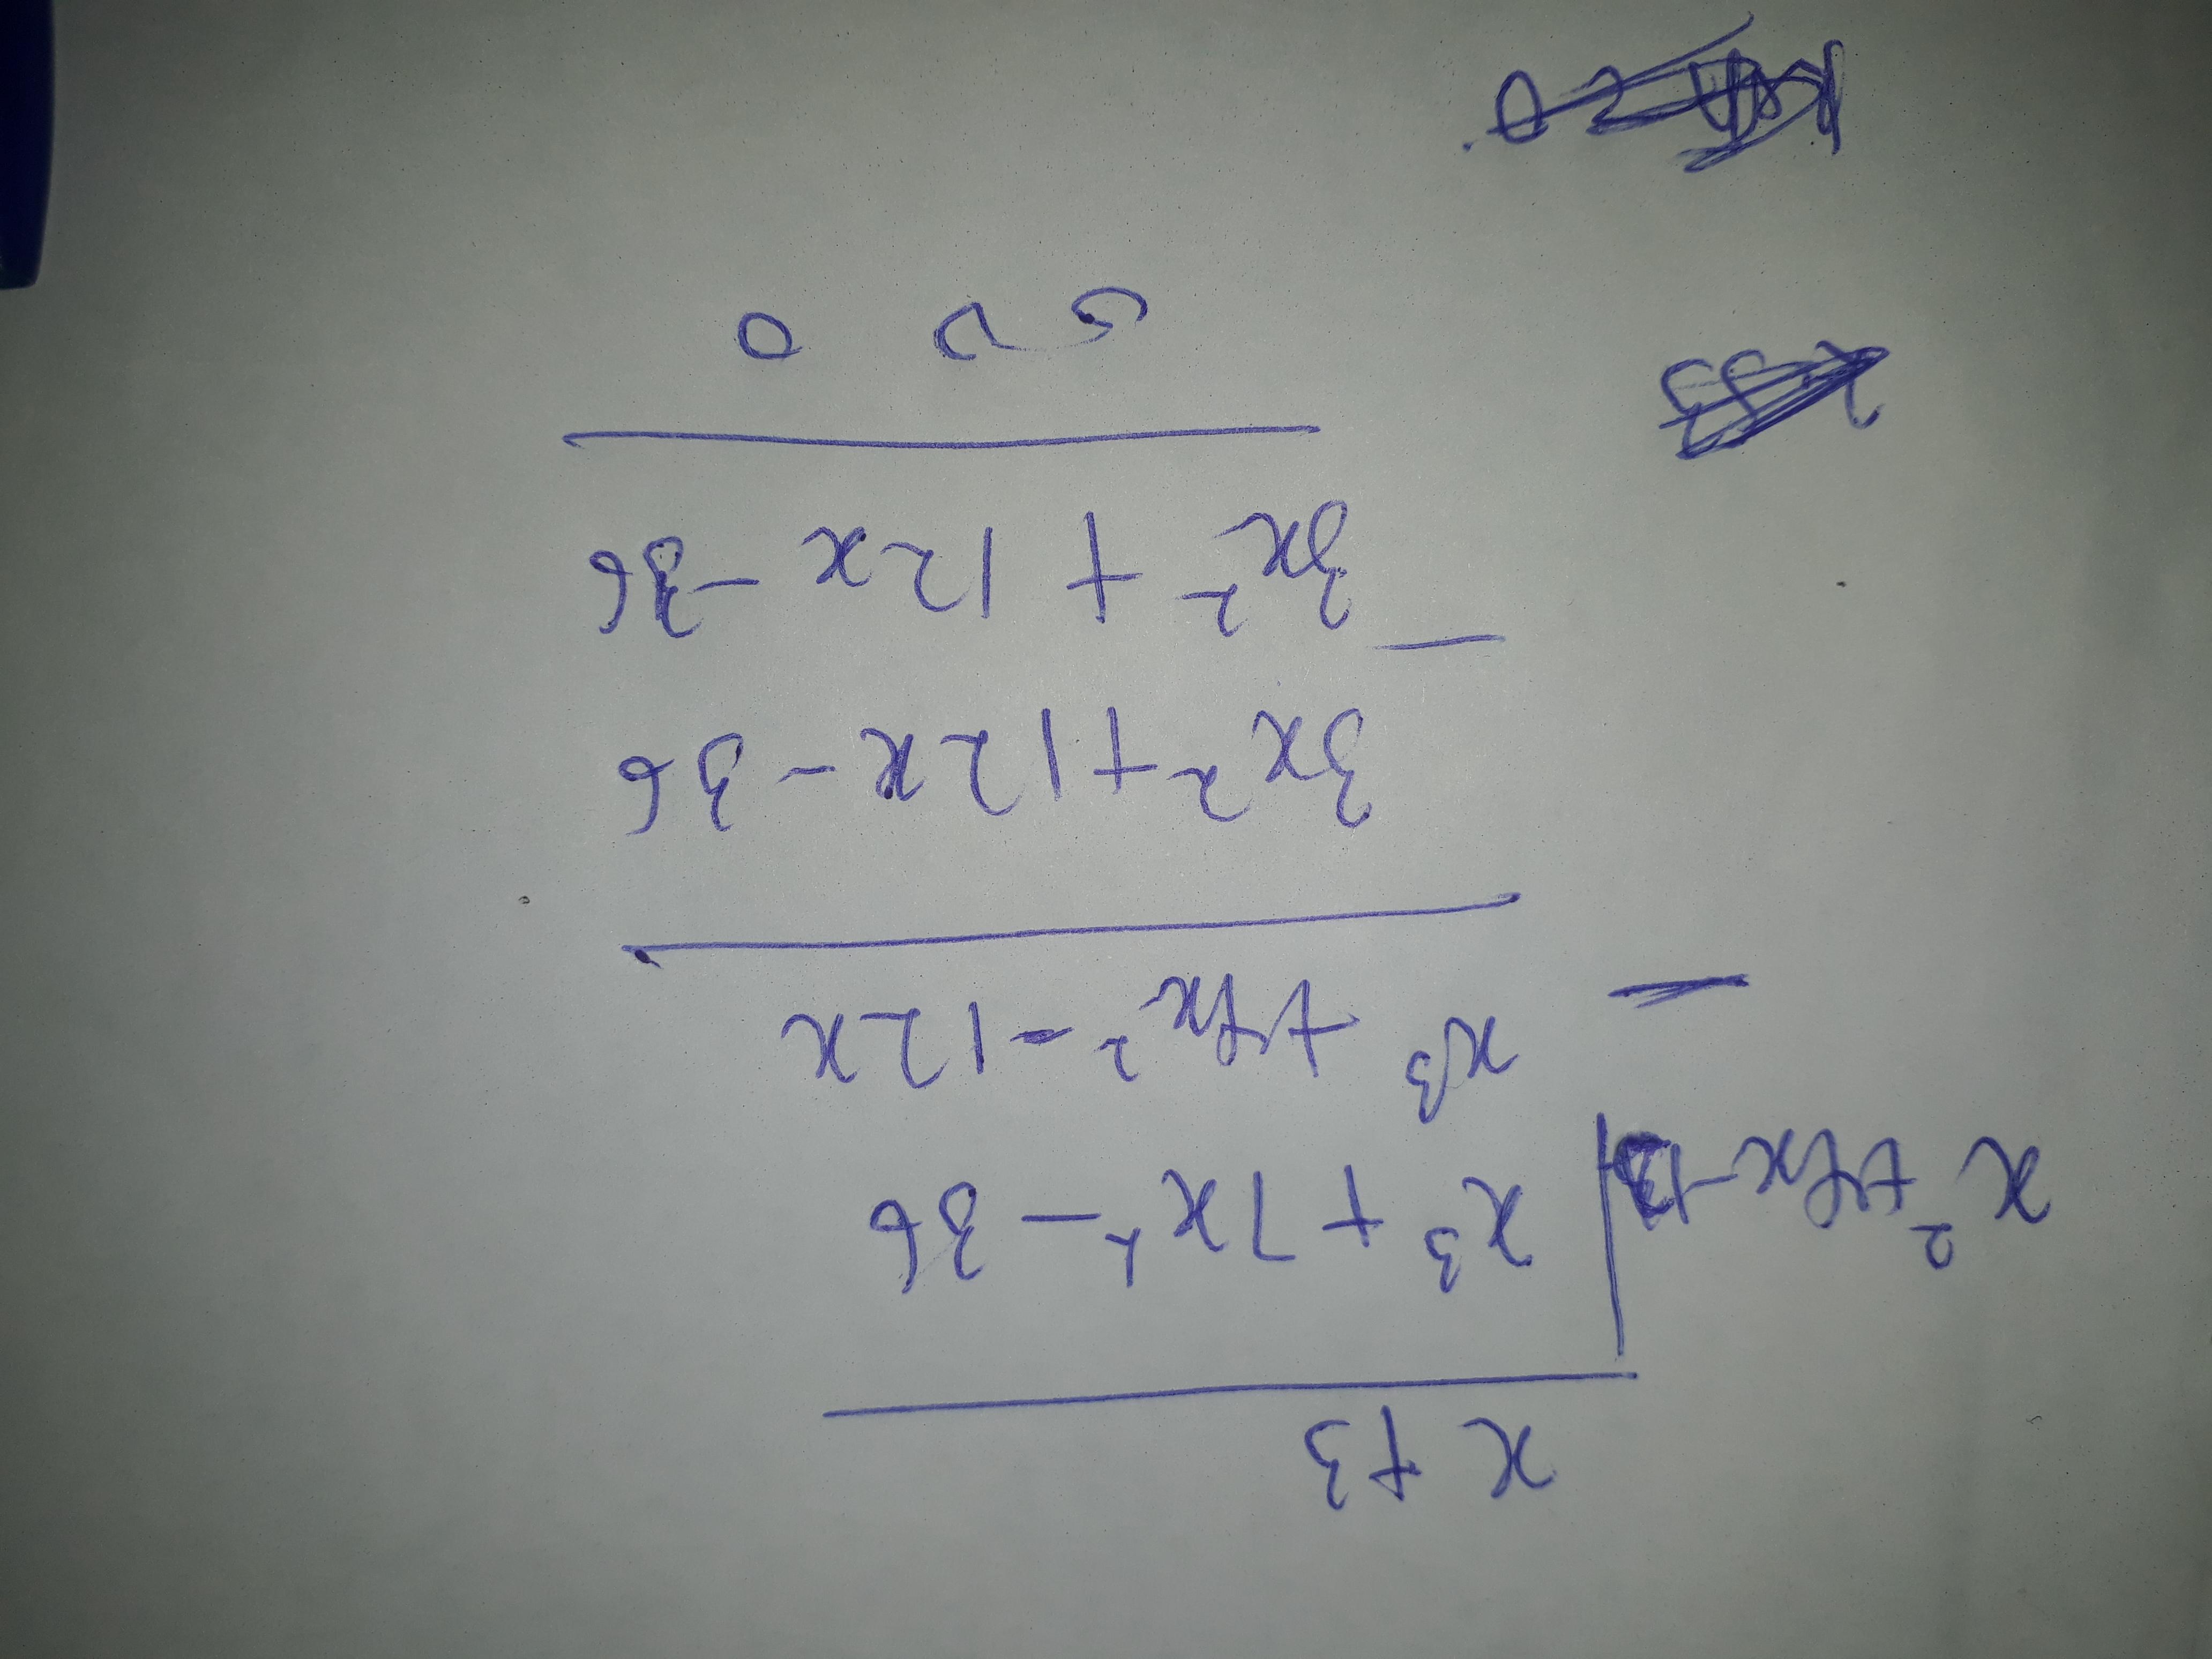 x + 3
x² + 4x - 12 | x³ + 7x² - 36
- x³ + 4x² - 12x
3x² + 12x - 36
- 3x² + 12x - 36
0 0 0